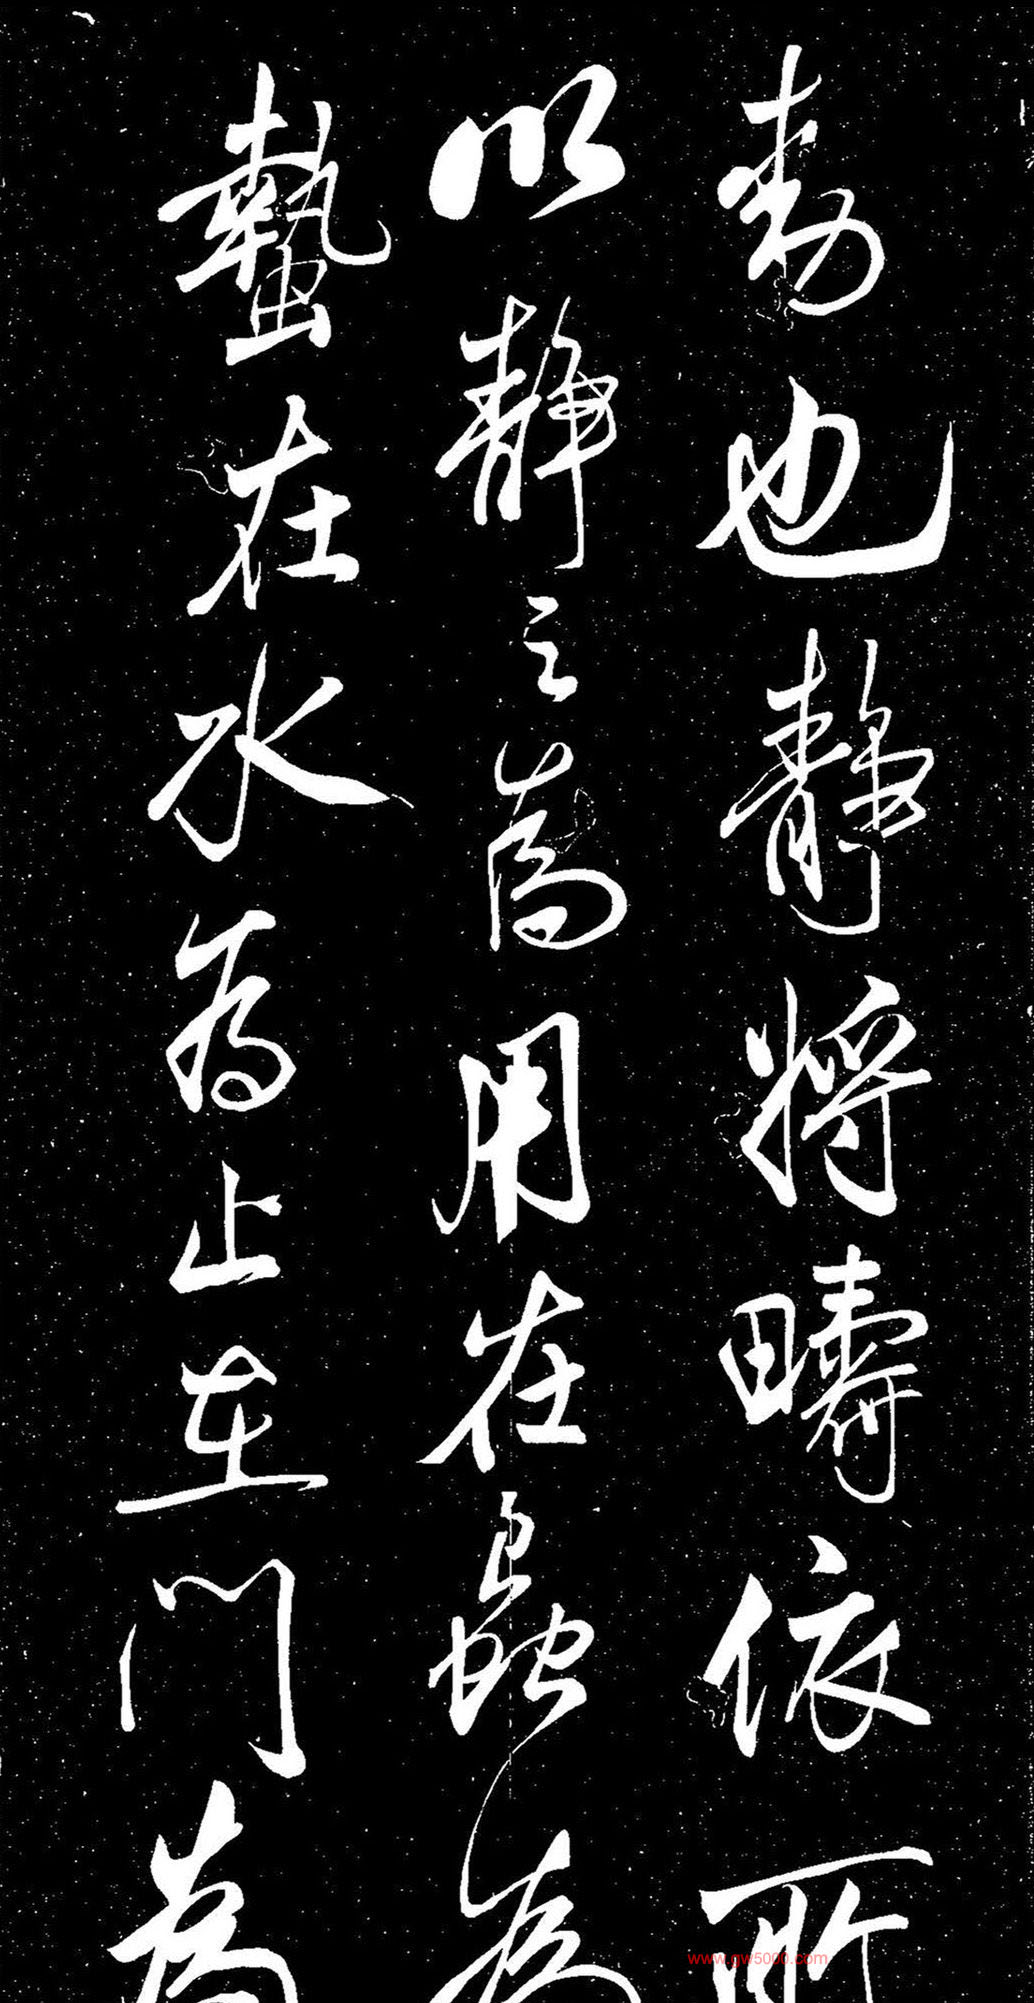 動也靜將疇依所
以靜之為用在蟲為
蟄在水為止在門為
www.gw5000.com